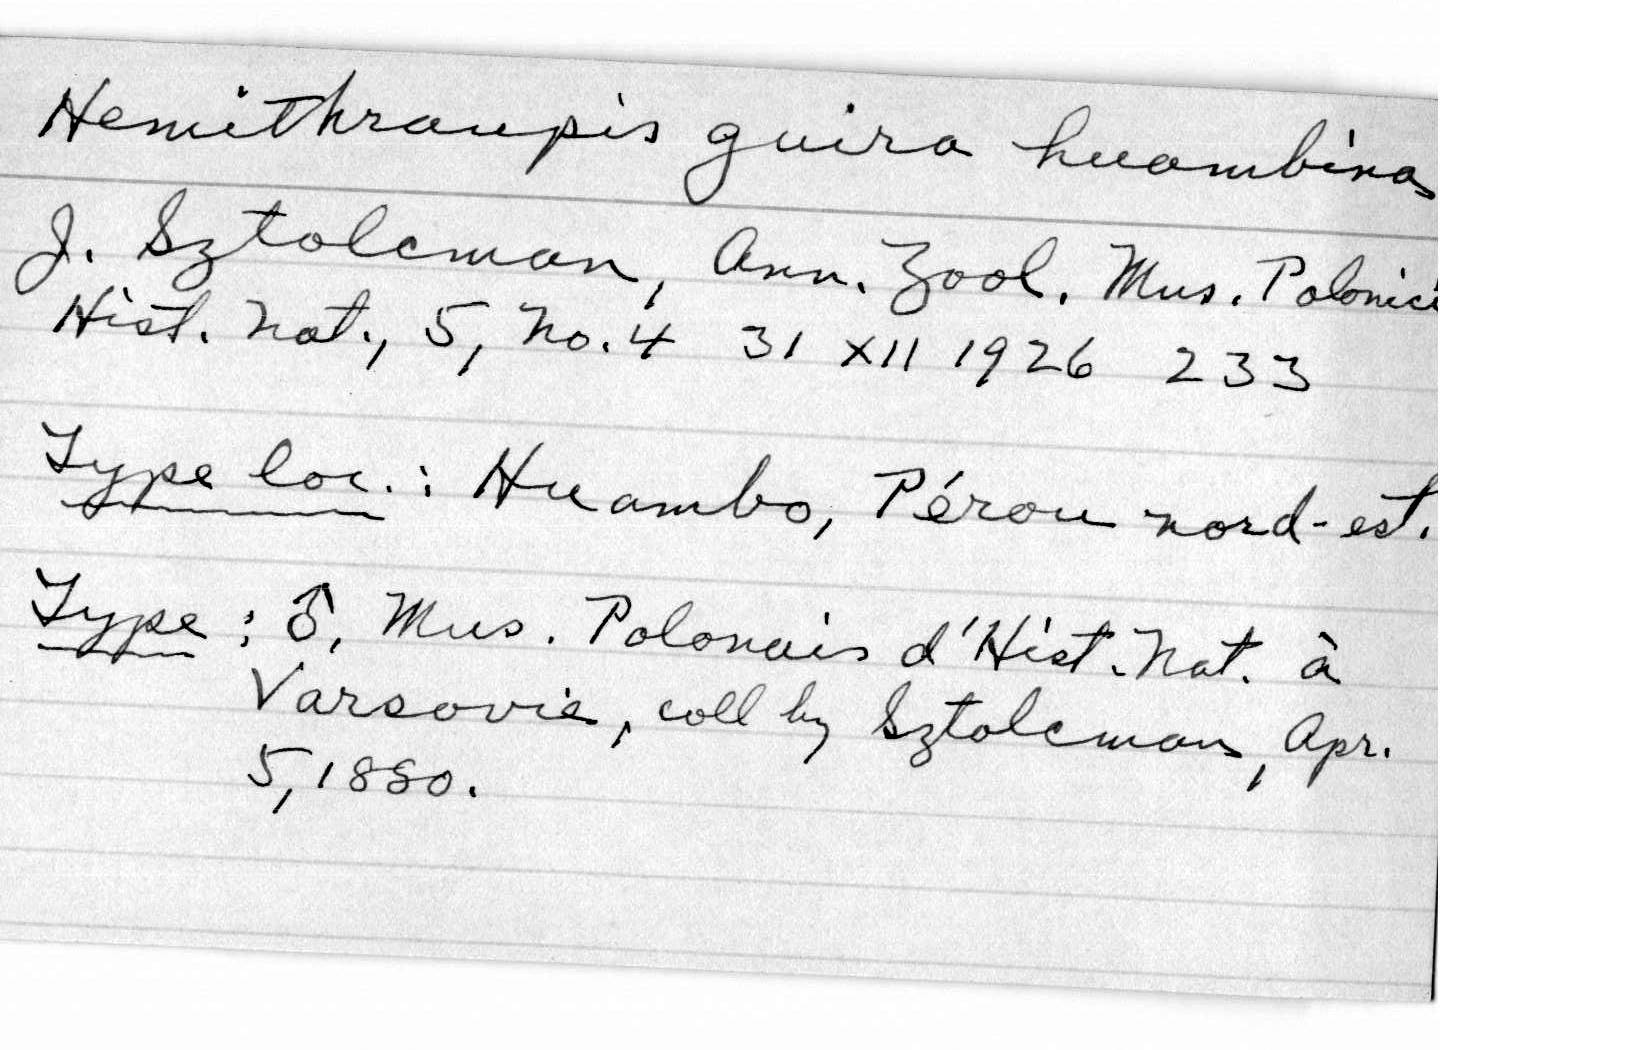 Hemithraupis guira huambina
J. Sztolcman, Ann. Zool. Mus. Polonici
Hist. Nat., 5, No. 4 31 XII 1926 233
Type loc.: Huambo, Pérou nord-est.
Type: ♂, Mus. Polonais d'Hist. Nat. à
Varsovie, coll by Sztolcman, Apr.
5, 1880.